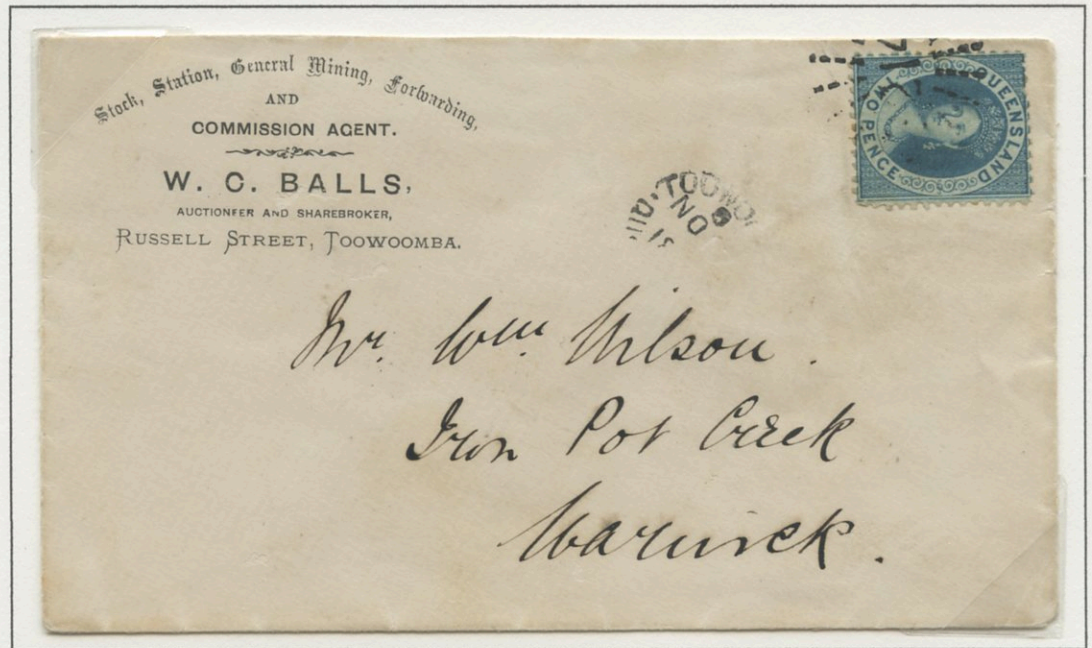 Stock, Station, General Mining, Forwarding,
AND
COMMISSION AGENT.
W. C. BALLS,
AUCTIONEER AND SHAREBROKER,
RUSSELL STREET, TOOWOOMBA.
QUEENSLAND
TWO PENCE
NO
Mr. Wm. Wilson.
Iron Pot Creek
Warwick.